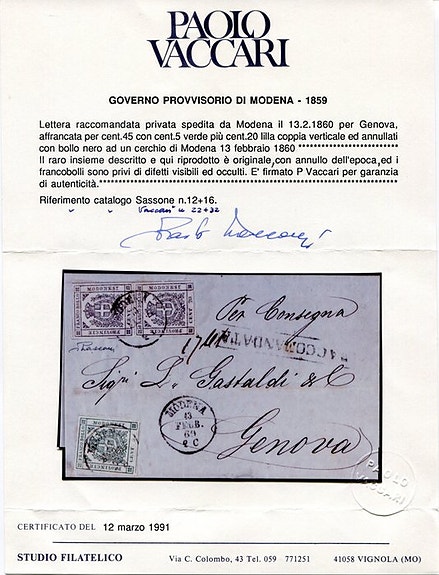 PAOLO
VACCARI
GOVERNO PROVVISORIO DI MODENA - 1859
Lettera raccomandata privata spedita da Modena il 13.2.1860 per Genova,
affrancata per cent.45 con cent.5 verde più cent.20 lilla coppia verticale ed annullati
con bollo nero ad un cerchio di Modena 13 febbraio 1860
Il raro insieme descritto e qui riprodotto è originale, con annullo dell'epoca, ed i
francobolli sono privi di difetti visibili ed occulti. E' firmato P Vaccari per garanzia
di autenticità.
Riferimento catalogo Sassone n.12+16.
" " Vaccari n 22+32
Paolo Vaccari
Per Consegna
RACCOMANDATA
Sigri L. Gastaldi & C
MODENA
13
FEBB.
60
Genova
PAOLO
VACCARI
CERTIFICATO DEL 12 marzo 1991
STUDIO FILATELICO Via C. Colombo, 43 Tel. 059 771251 41058 VIGNOLA (MO)